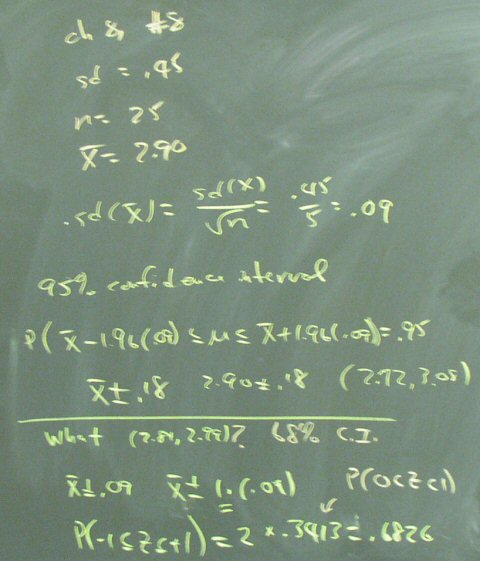 ch 8, #8
sd = .45
n = 25
x̄ = 2.90
sd(x̄) = sd(x)/√n = .45/5 = .09
95% confidence interval
P(x̄-1.96(.09) ≤ μ ≤ x̄+1.96(.09)) = .95
x̄ ± .18 2.90 ± .18 (2.72, 3.08)
What (2.81, 2.99)? 68% C.I.
x̄ ± .09 x̄ ± 1.(.09) P(0<z<1)
P(-1≤z≤+1) = 2 * .3413 = .6826